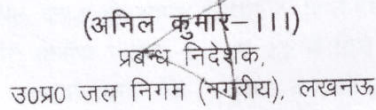 (अनिल कुमार-।।।)
प्रबन्ध निदेशक,
उ0प्र0 जल निगम (नगरीय), लखनऊ